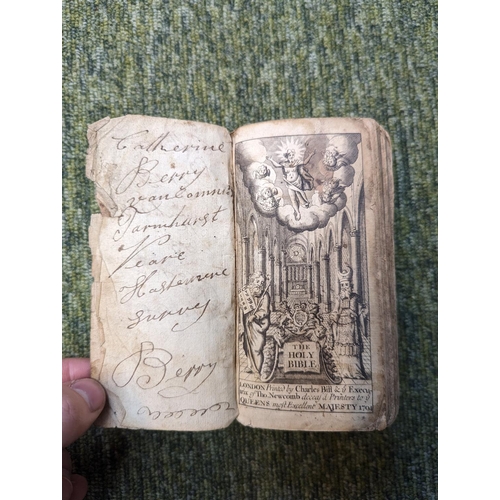 Catherine
Berry
Farmhurst
Neare
Haslemere
Surrey
Berry
THE
HOLY
BIBLE
LONDON Printed by Charles Bill & ỹ Execu-
trix of Tho. Newcomb deceas'd. Printers to ỹ
QUEENS most Excellent MAJESTY